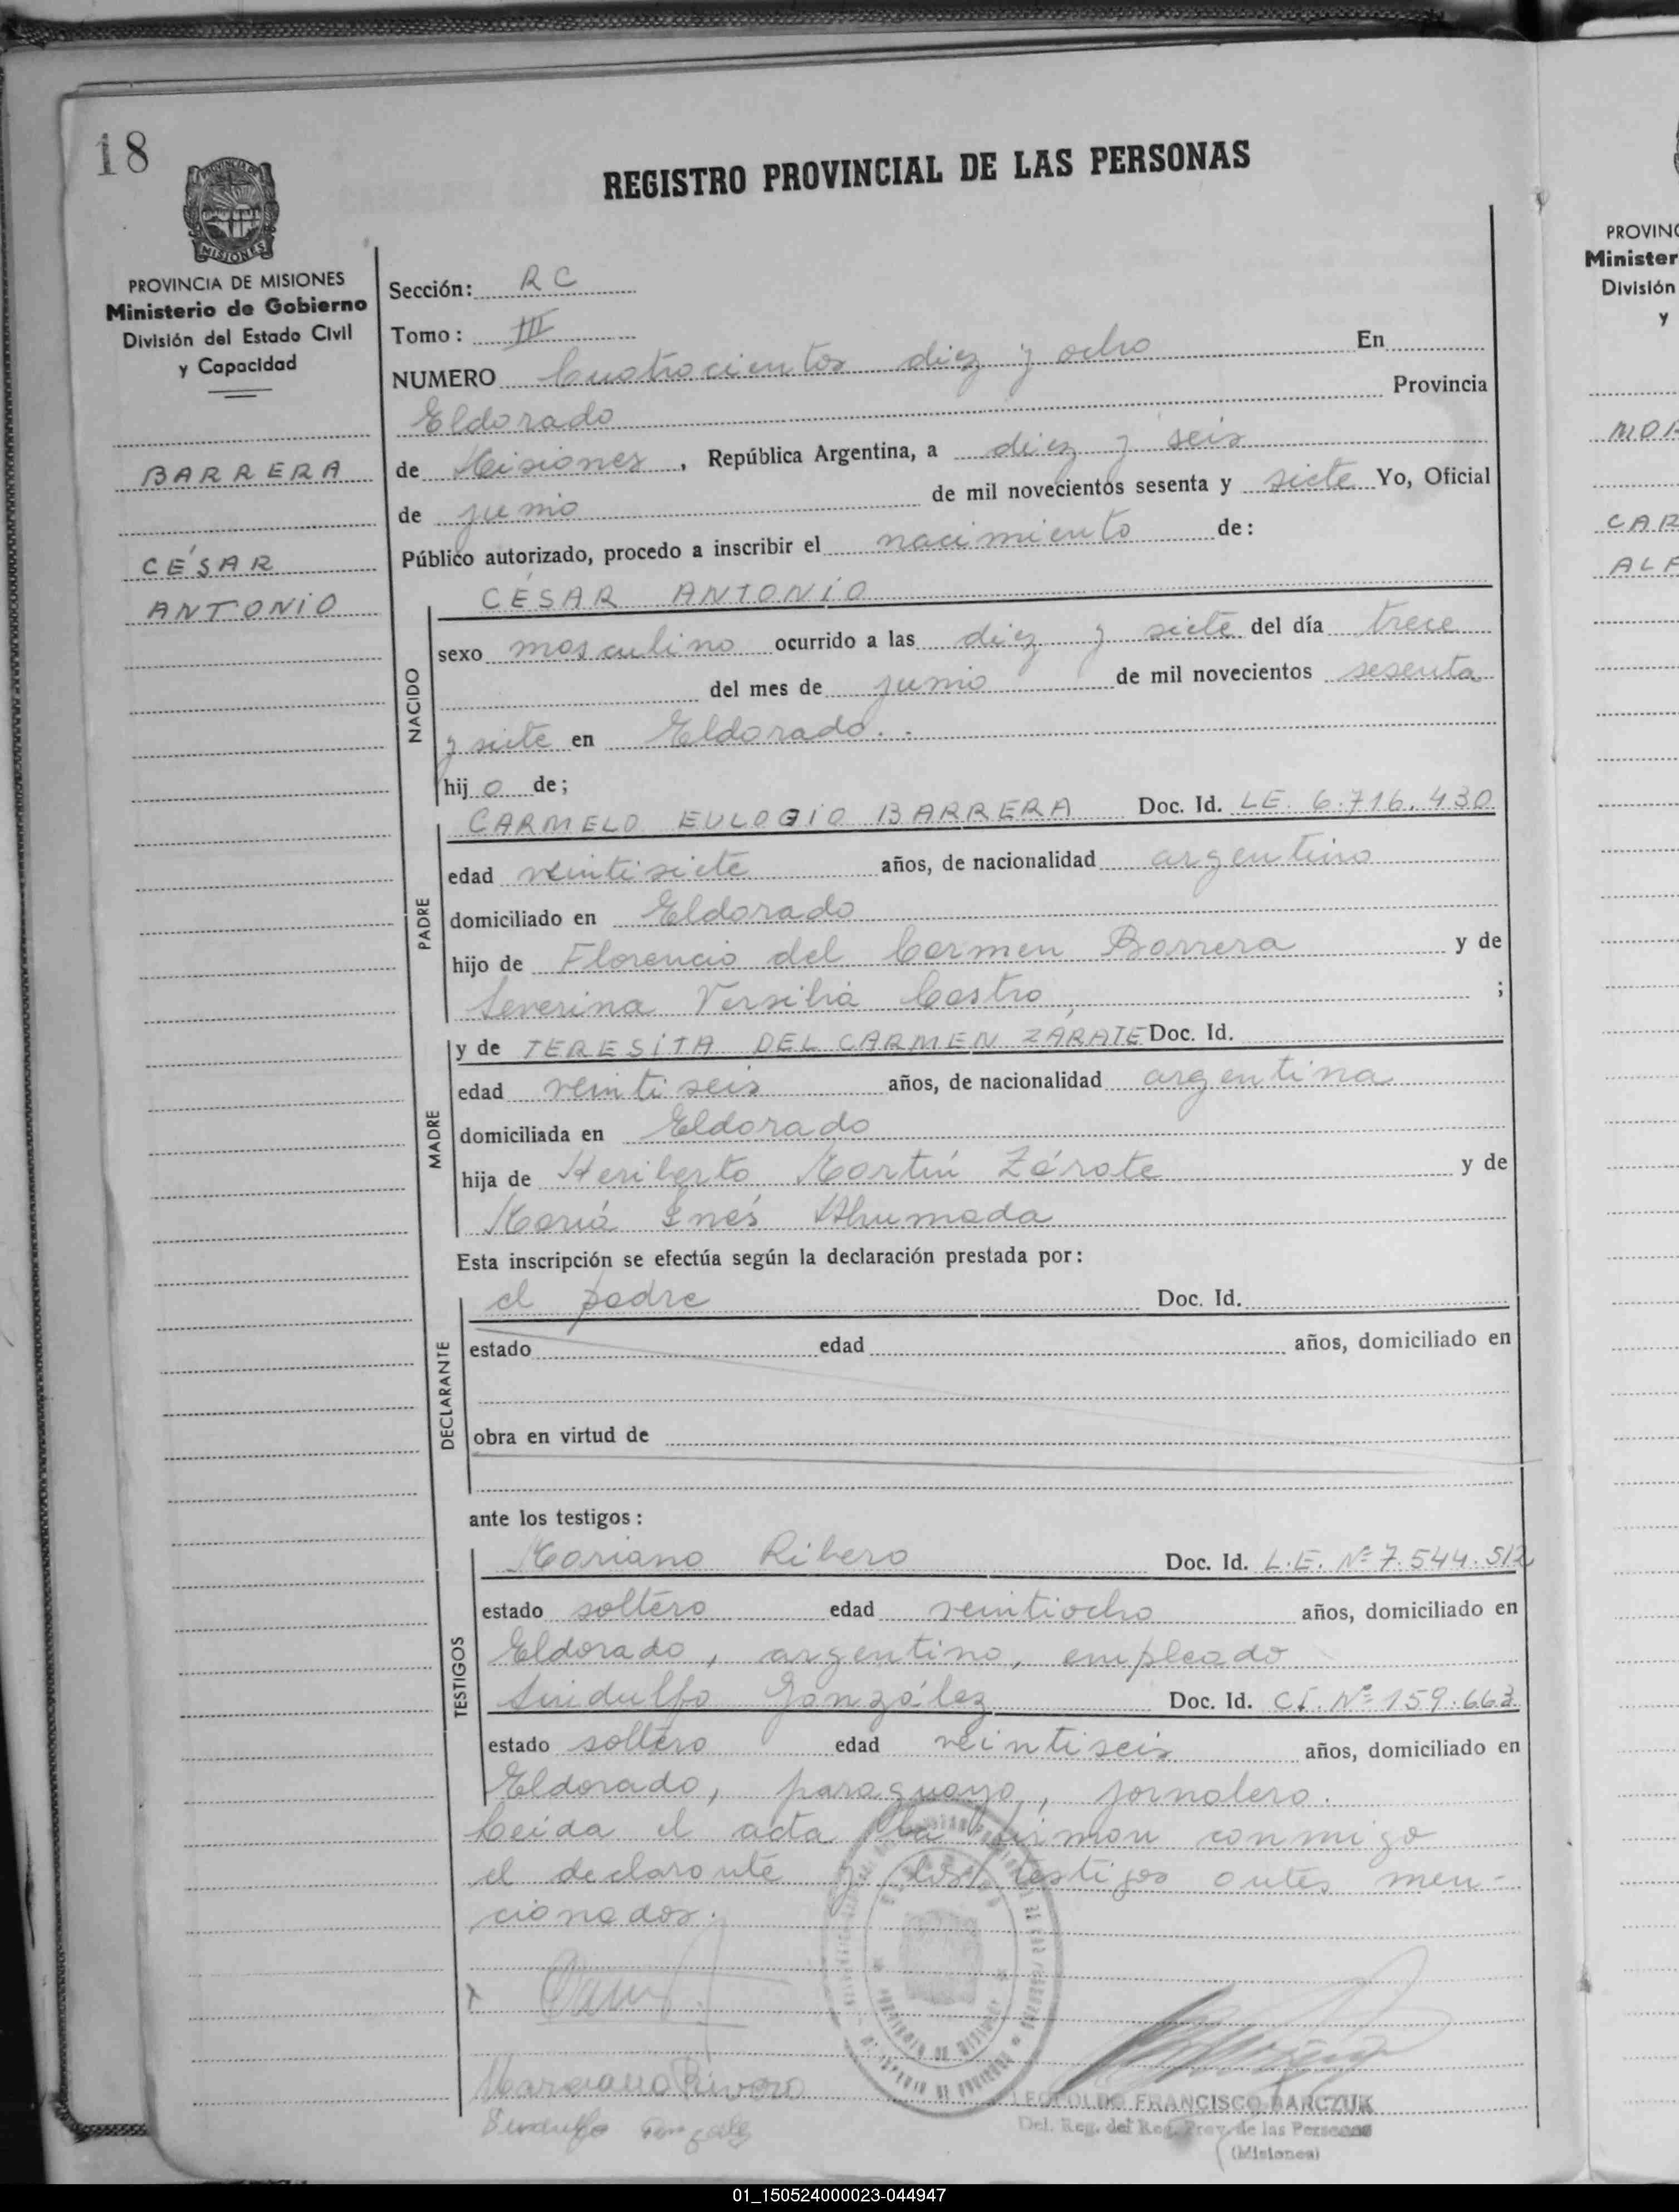 18
REGISTRO PROVINCIAL DE LAS PERSONAS
PROVINCIA DE
MISIONES
PROVINCIA DE MISIONES
Ministerio de Gobierno
División del Estado Civil
y Capacidad
BARRERA
CÉSAR
ANTONIO
Sección: RC
Tomo: III
NUMERO Cuatrocientos diez y ocho En
Eldorado Provincia
de Misiones, República Argentina, a diez y seis
de junio de mil novecientos sesenta y siete Yo, Oficial
Público autorizado, procedo a inscribir el nacimiento de:
CÉSAR ANTONIO
NACIDO
sexo masculino ocurrido a las diez y siete del día trece
del mes de junio de mil novecientos sesenta
y siete en Eldorado.-
hijo de;
CARMELO EULOGIO BARRERA Doc. Id. LE. 6.716.430
PADRE
edad veintisiete años, de nacionalidad argentino
domiciliado en Eldorado
hijo de Florencio del Carmen Barrera y de
Severina Versilia Castro ;
y de TERESITA DEL CARMEN ZÁRATE Doc. Id.
MADRE
edad veintiseis años, de nacionalidad argentina
domiciliada en Eldorado
hija de Heriberto Martín Zárate y de
María Inés Ahumada
Esta inscripción se efectúa según la declaración prestada por:
el padre Doc. Id.
DECLARANTE
estado edad años, domiciliado en
obra en virtud de
ante los testigos:
Mariano Ribero Doc. Id. L.E. Nº 7.544.512
TESTIGOS
estado soltero edad veintiocho años, domiciliado en
Eldorado, argentino, empleado
Sindulfo González Doc. Id. C.I. Nº 159.663
estado soltero edad veintiseis años, domiciliado en
Eldorado, paraguayo, jornalero.
Leida el acta la firman conmigo
el declarante y los testigos antes men-
cionados.
LEOPOLDO FRANCISCO BARCZUK
Del. Reg. del Reg. Prov. de las Personas
(Misiones)
PROVINC
Minister
División
y
MOR
CAR
ALF
01_150524000023-044947